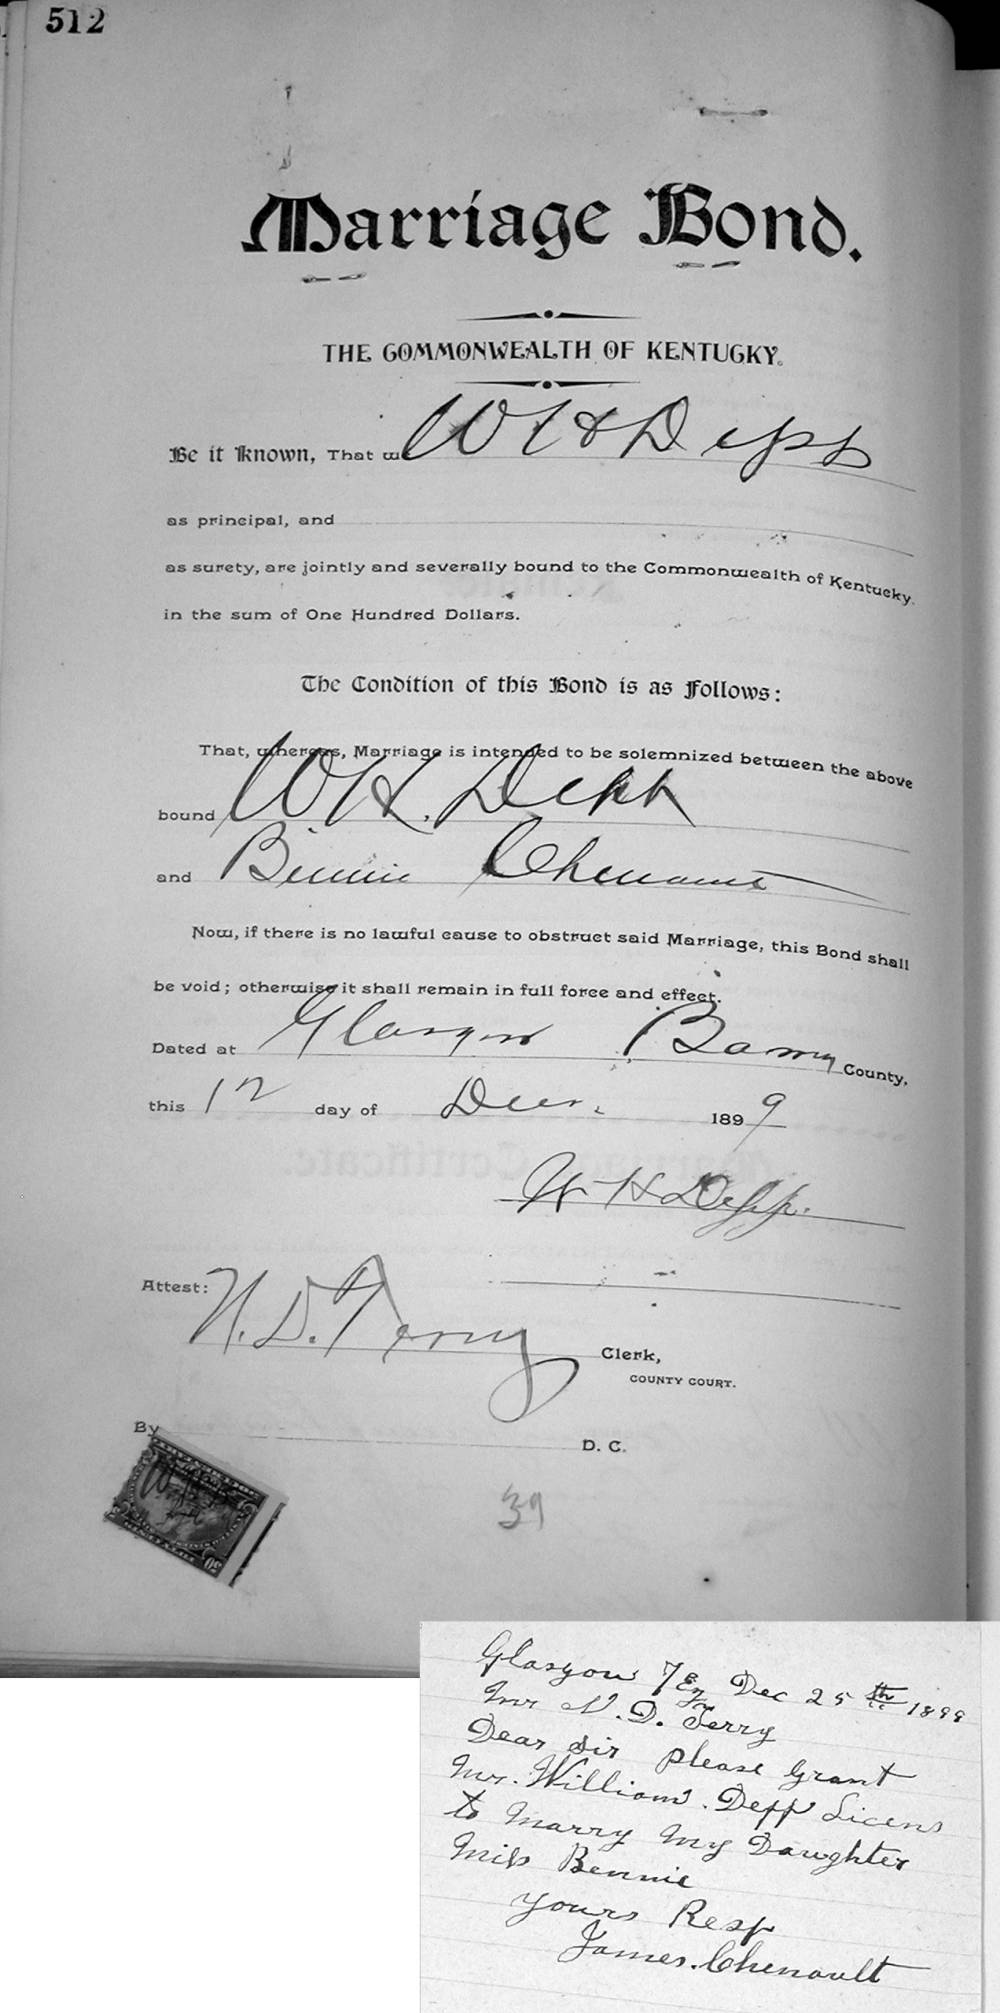 512
Marriage Bond.
THE COMMONWEALTH OF KENTUCKY.
Be it Known, That we W H Depp
as principal, and
as surety, are jointly and severally bound to the Commonwealth of Kentucky.
in the sum of One Hundred Dollars.
The Condition of this Bond is as Follows:
That, whereas, Marriage is intended to be solemnized between the above
bound W H. Depp
and Binnie Chenault
Now, if there is no lawful cause to obstruct said Marriage, this Bond shall
be void; otherwise it shall remain in full force and effect.
Dated at Glasgow Barren County,
this day of Decr. 1899
W H Depp.
Attest: N. D. Terry
Clerk,
COUNTY COURT.
By D. C.
39
50
Glasgow Ky Dec 25th 1899
Mr N. D. Terry
Dear Sir please Grant
Mr. William. Depp Licens
to Marry My Daughter
Miss Bennie
yours Resp
James. Chenault